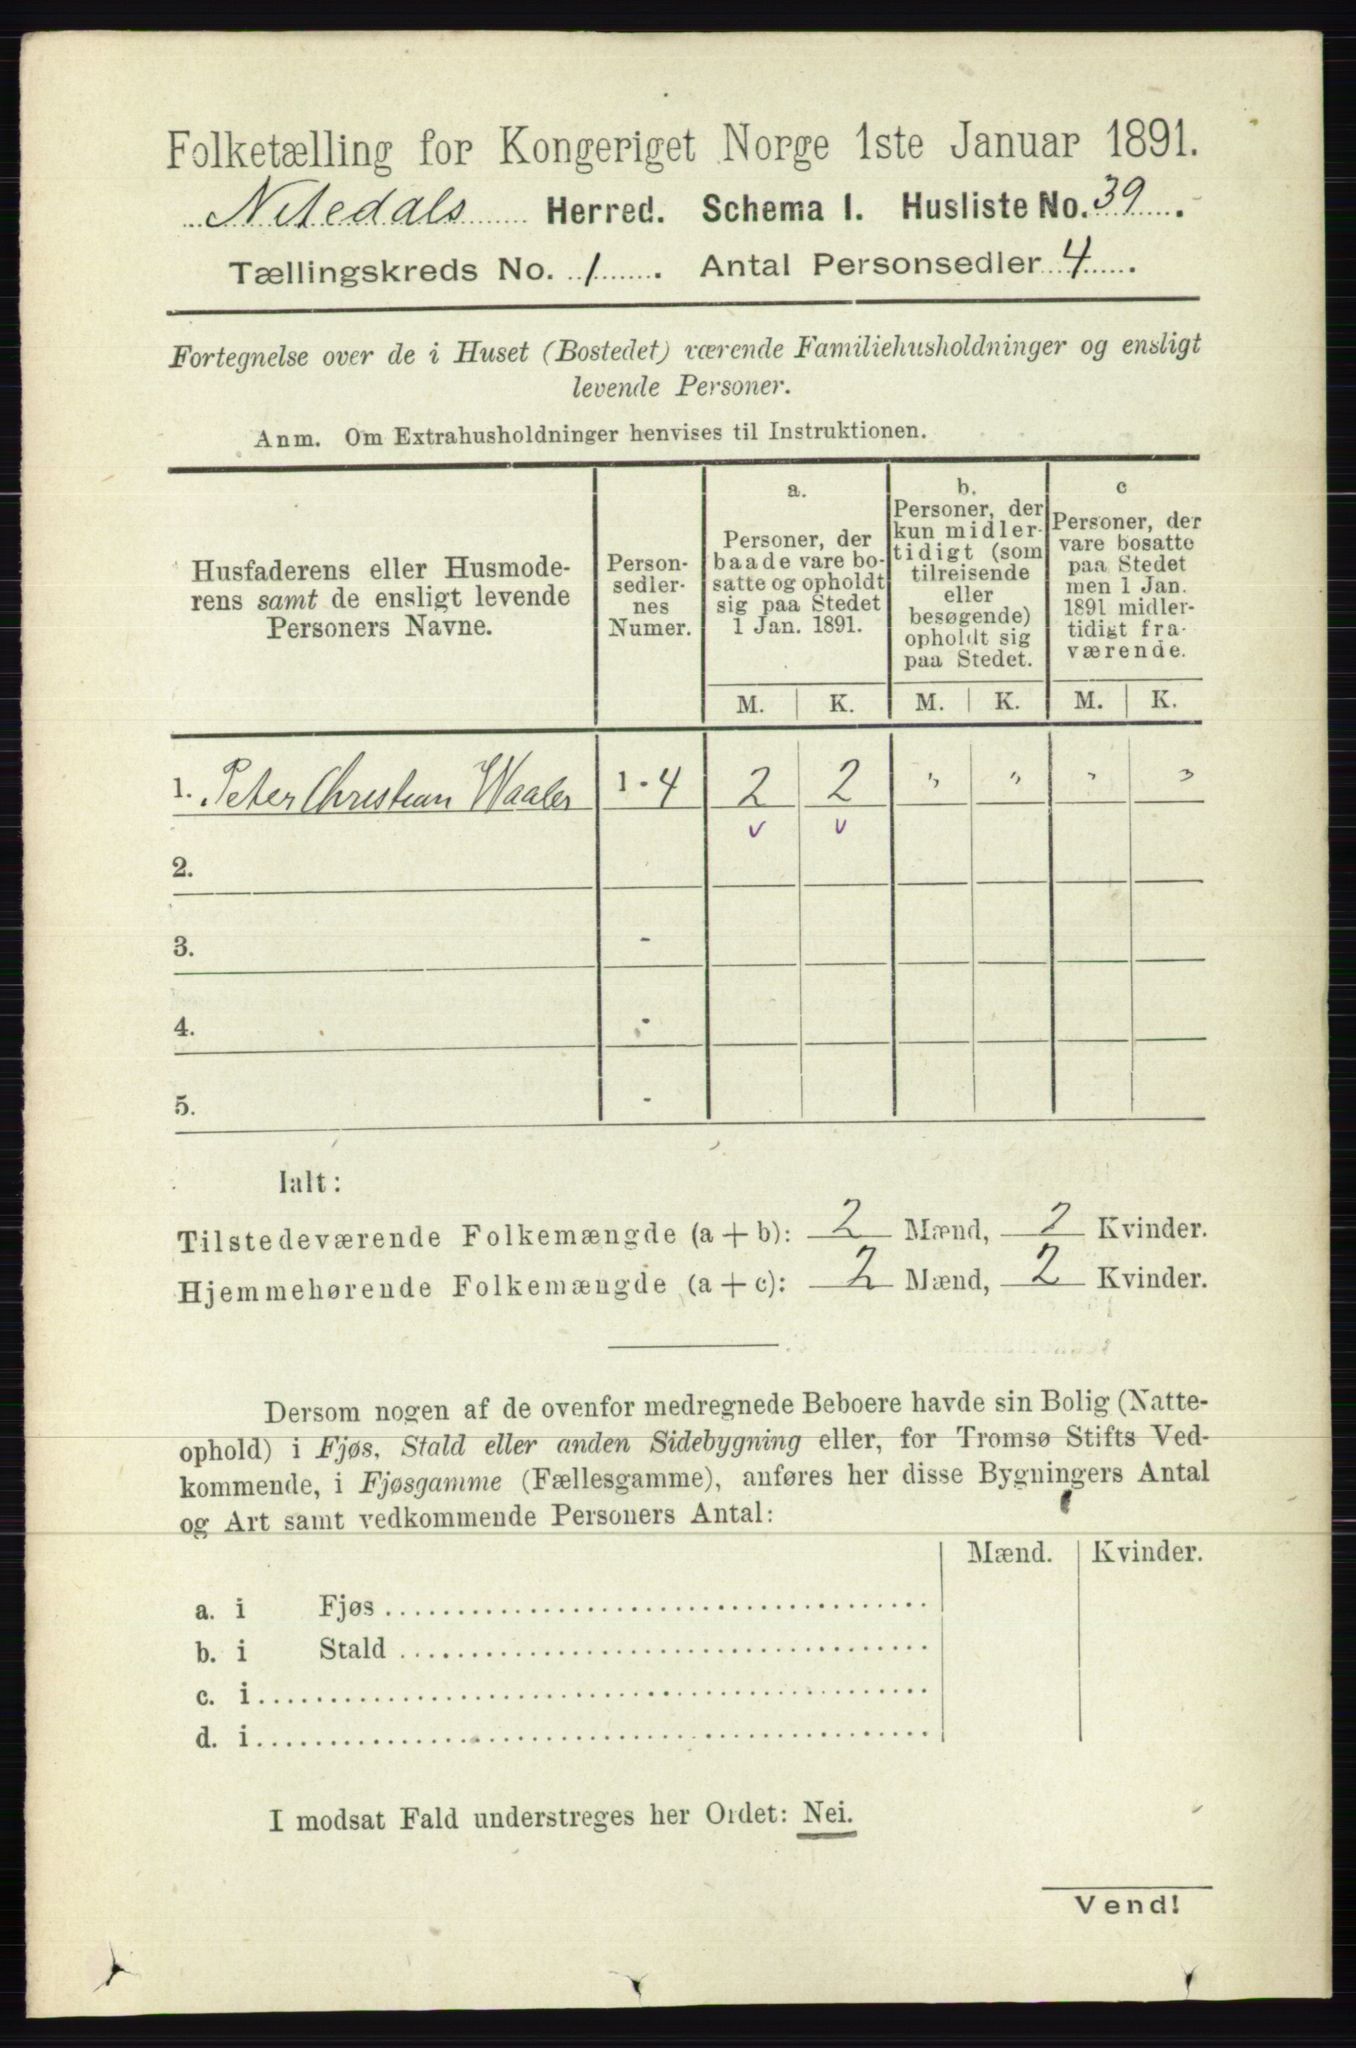 Folketælling for Kongeriget Norge 1ste Januar 1891.
Nitedals Herred. Schema I. Husliste No. 39.
Tællingskreds No. 1. Antal Personsedler 4.
Fortegnelse over de i Huset (Bostedet) værende Familiehusholdninger og ensligt
levende Personer.
Anm. Om Extrahusholdninger henvises til Instruktionen.
Husfaderens eller Husmode-
rens samt de ensligt levende
Personers Navne.
Person-
sedler-
nes
Numer.
a.
Personer, der
baade vare bo-
satte og opholdt
sig paa Stedet
1 Jan. 1891.
b.
Personer, der
kun midler-
tidigt (som
tilreisende
eller
besøgende)
opholdt sig
paa Stedet.
c
Personer, der
vare bosatte
paa Stedet
men 1 Jan.
1891 midler-
tidigt fra-
værende.
M. K. M. K. M. K.
1. Peter Christian Waaler 1-4 2 2 " " " "
v v
2.
3. -
4. -
5. -
Ialt:
Tilstedeværende Folkemængde (a + b): 2 Mænd, 2 Kvinder.
Hjemmehørende Folkemængde (a + c): 2 Mænd, 2 Kvinder.
Dersom nogen af de ovenfor medregnede Beboere havde sin Bolig (Natte-
ophold) i Fjøs, Stald eller anden Sidebygning eller, for Tromsø Stifts Ved-
kommende, i Fjøsgamme (Fællesgamme), anføres her disse Bygningers Antal
og Art samt vedkommende Personers Antal:
Mænd. Kvinder.
a. i Fjøs
b. i Stald
c. i
d. i
I modsat Fald understreges her Ordet: Nei.
Vend!